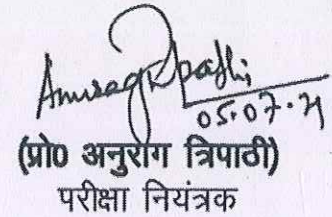 Anurag Tripathi
05.07.21
(प्रो0 अनुराग त्रिपाठी)
परीक्षा नियंत्रक